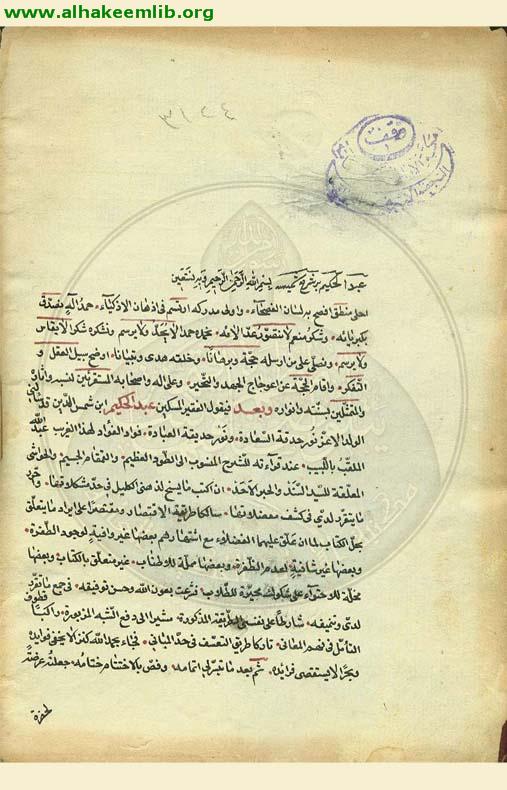 www.alhakeemlib.org
٤٢١٣
وقفت
عبد الحكيم بر شرح شمسيه بسم الله الرحمن الرحيم وبه نستعين
احلى منطق افصح به لسان الفصحآء واوفى مدركه ارتسم فى اذهان الاذكيآء حمد اله يصدق
بكبريائه وشكر منعم لا نتصور عد الائه نحمده حمدا لا يحد ولا يرسم ونشكره شكرا لا يقاس
ولا يرسم ونصلى على من ارسله حجة وبرهانا وخلقته هدى وتبيانا اوضح سبيل العقل و
التفكر واقام الحجة عن اعوجاج الجهد والتحير وعلى اله واصحابه المستقرئين لسيره واثاره
والمتمثلين بسننه وانواره وبعد فيقول الفقير المسكين عبد الحكيم ابن شمس الدين قد سألنى
الولد الاعز نور حدقة السعادة ونور حديقة العبادة فواد الفؤاد لهذا الغريب عبد الله
الملقب باللبيب عند قرآءته للشرح المنسوب الى الطود العظيم والقمقام الجسيم والحواشى
المعلقة للسيد السند والحبر الاحد ان اكتب ما يسنح لذهنى الكليل فى حد مشكلاتها واحرر
ما يتقرر لدى فى كشف معضلاتها سالكا طريقة الاقتصاد ومقتصدا على ايراد ما يتعلق
بحل الكتاب لما ان علق عليهما الفضلاء مع اشتهارهم بعضها غير وافية لوجود الطفرة
وبعضها غير شافية لعدم الظفرة وبعضها مملة للاطناب غير متعلق بالكتاب وبعضها
مخلة للاحتوآء على شكوك محيرة للطلاب فشرعت بعون الله وحسن توفيقه فى جمع ما تقرر
لدى وتنميقه شارطا على نفسى الطريقة المذكورة مشيرا الى دفع الشبه المزبورة واكبا قطوف
التأمل فى فهم المعانى تاركا طريق التعسف فى حد المبانى فجاء بحمد الله كنزا لا يخفى فوايده
وبحرا لا يستقصى فرايده ثم بعد ما تيسر لى اتمامه وفض بالاختتام ختامه جعلته عرضة
لحضرة